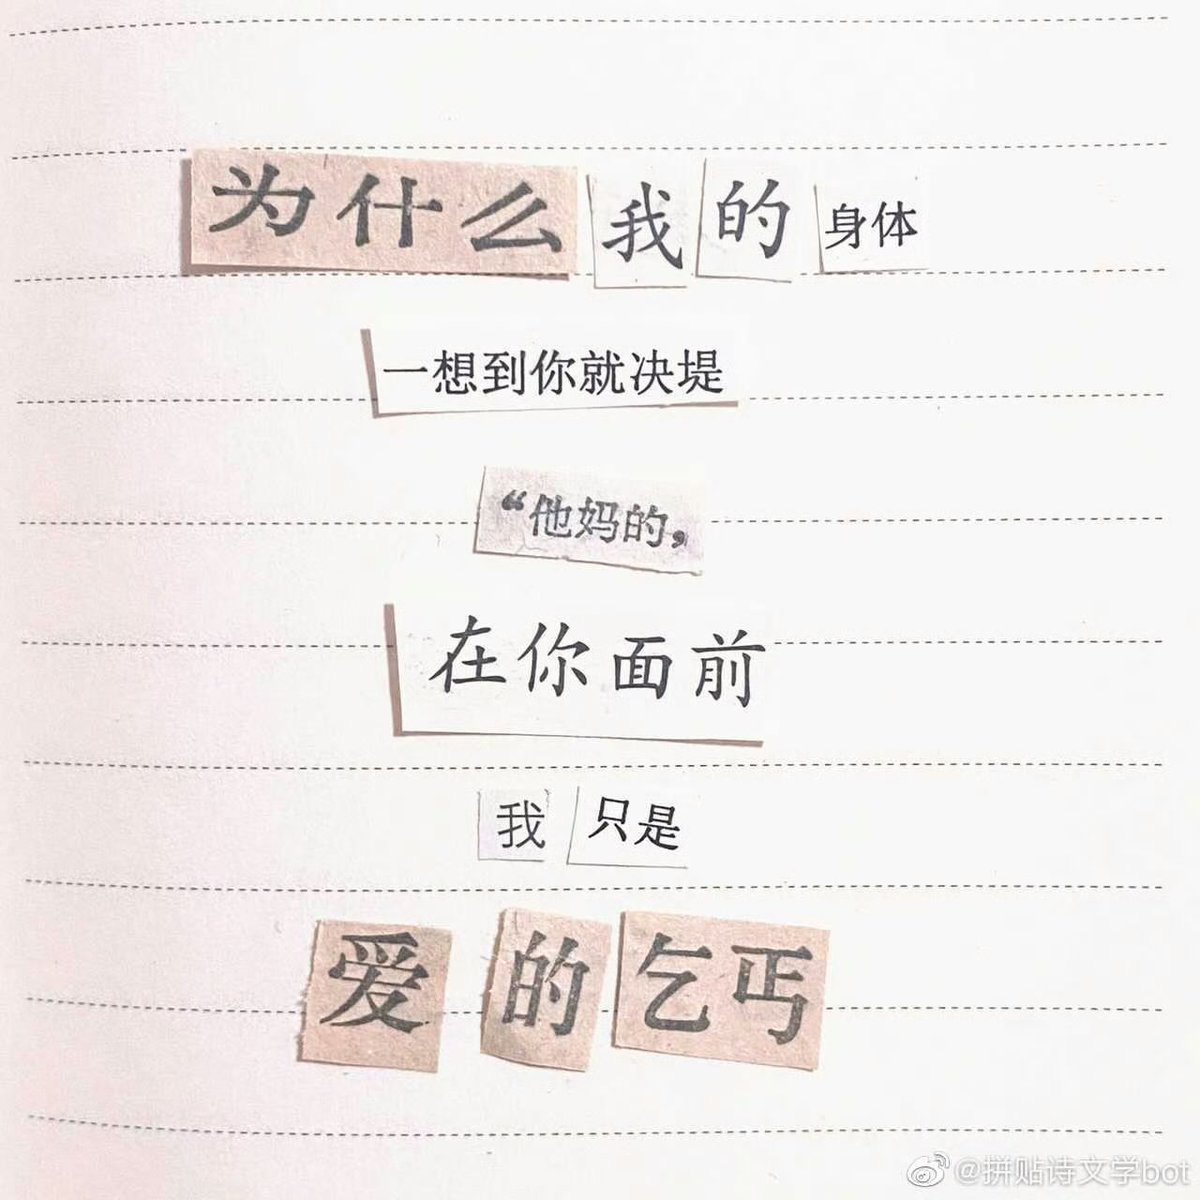 为什么我的身体
一想到你就决堤
“他妈的，
在你面前
我只是
爱的乞丐
@拼贴诗文学bot